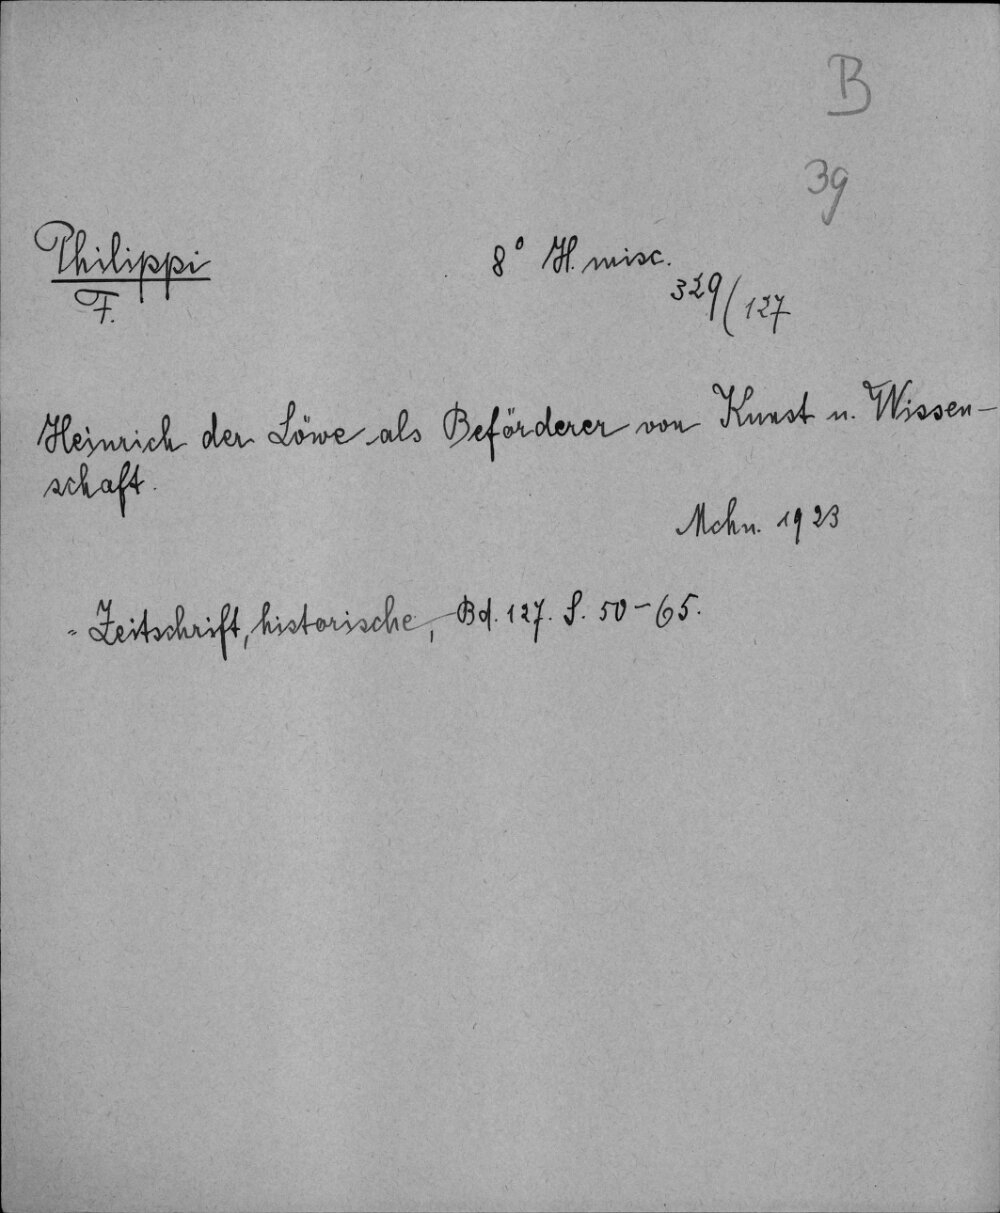 B
39
Philippi
F.
8° H. misc.
329/127
Heinrich der Löwe als Beförderer von Kunst u. Wissen-
schaft.
Mchn. 1923
= Zeitschrift, historische, Bd. 127. S. 50-65.